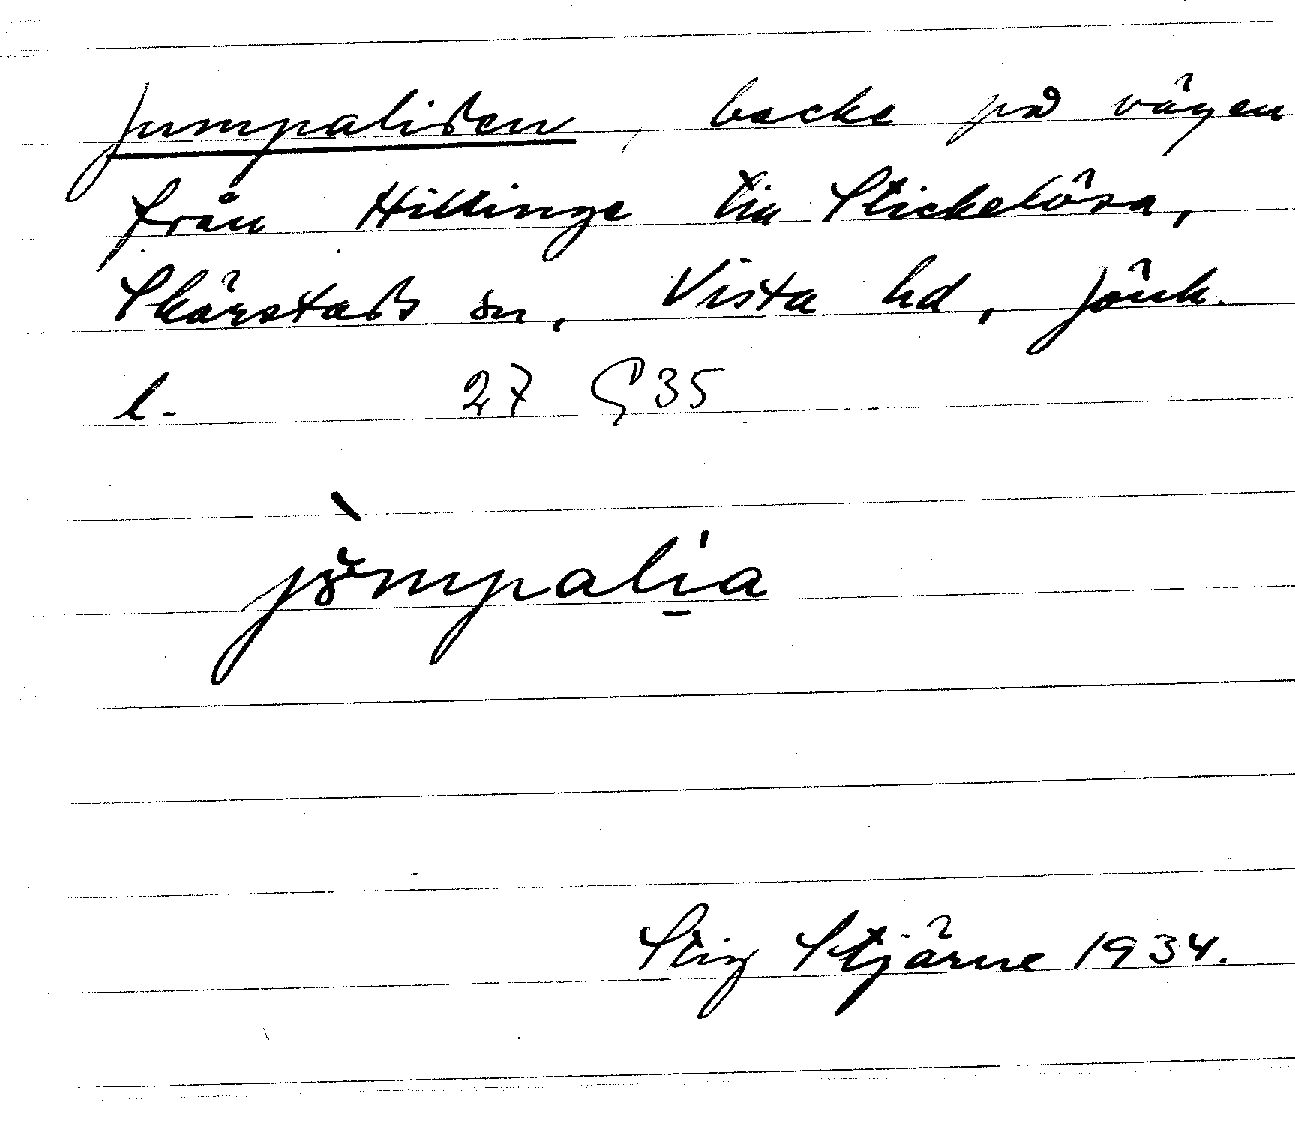 Jumpaliden, backe på vägen
från Hillinge till Stickelösa,
Skärstads sn, Vista hd, Jönk.
l. 27 G 35
jumpalia
Stig Stjärne 1934.